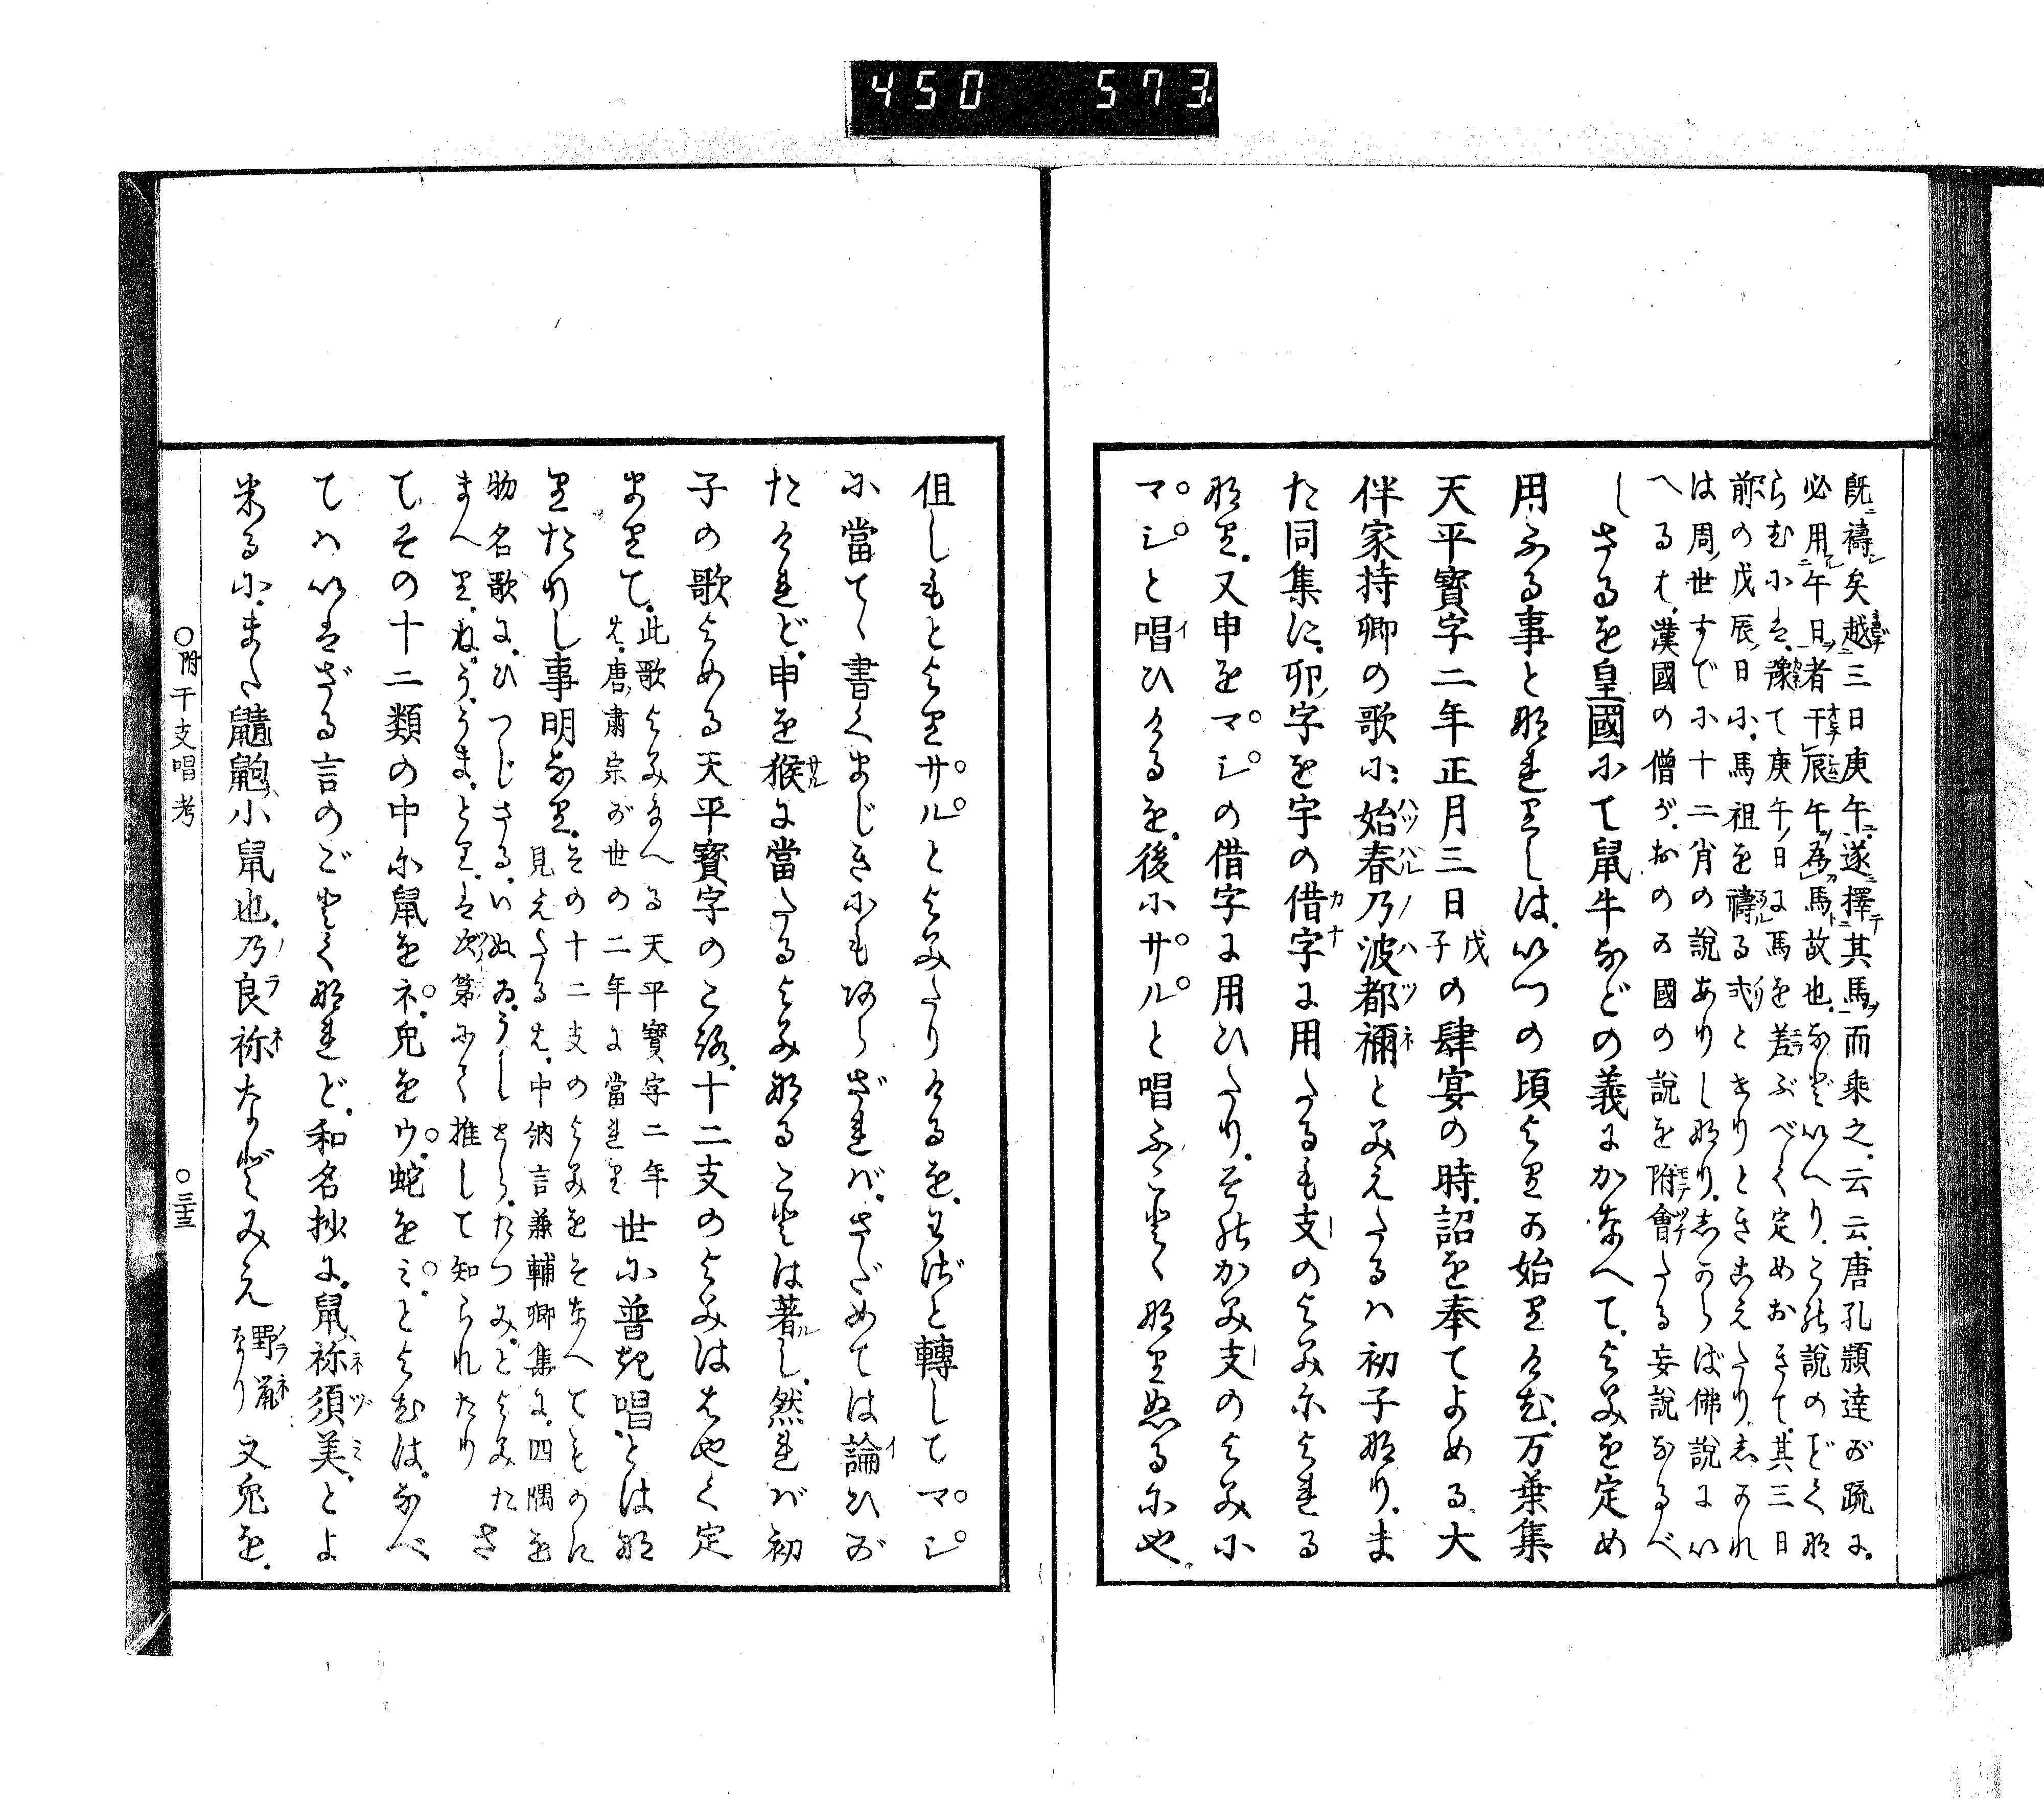 450 573
既ニ禱レ矣越三日庚午ニ遂ニ擇テ其馬ヲ而乘之云云唐孔頴達が疏に
必用ルニ午日ヲ者干辰午ヲ爲馬ト故也などいへりこは說のごとく
らむには豫て庚午ノ日に馬を差ぶべく定めおきて其三日
前の戊辰ノ日に馬祖を禱る式ときりときこえたりしかれ
は周ノ世すでに十二肖の說ありしなりしからば佛說にい
へるは漢國の僧がおのが國の說を附會たる妄說なるべ
し
さるを皇國にて鼠牛などの義にかなへてよみを定め
用ふる事となれりしはいつの頃よりか始りけむ万葉集
天平寶字二年正月三日戊子の肆宴の時詔を奉てよめる大
伴家持卿の歌に始春乃波都禰とみえたるハ初子なりま
た同集に卯ノ字を宇の借字に用たるも支のよみによれる
なり又申をマシの借字に用ひたりそはかみ支のよみに
マシと唱ひけるを後にサルと唱ふことゝなりぬるにや
但しもとよりサルとよみたりけるをはやと轉してマシ
に當てゝ書くまじきにもあらざればさだめては論ひが
たけれど申を猴に當たるよみなることは著し然れば初
子の歌よめる天平寶字のころ十二支のよみははやく定
まりて此歌よみたまへる天平寶字二年は唐ノ肅宗が世の二年に當れり世に普く唱とはな
りたれりし事明なりその十二支のよみをそなへてものに見えたるは中納言兼輔卿集に四隅を
物名歌にひつじさるいぬゐうしとらたつみとよみた
まへりねうううまとりは次第にて推して知られたり さ
てその十二類の中に鼠をネ兎をウ蛇をミとよむはなべ
てハいはざる言のごとくなれど和名抄に鼠ハ祢須美とよ
米るにまた鼱鼩ハ小鼠也乃良祢などみえ野鼠なり又兎を
○附 干支唱考
○三十三